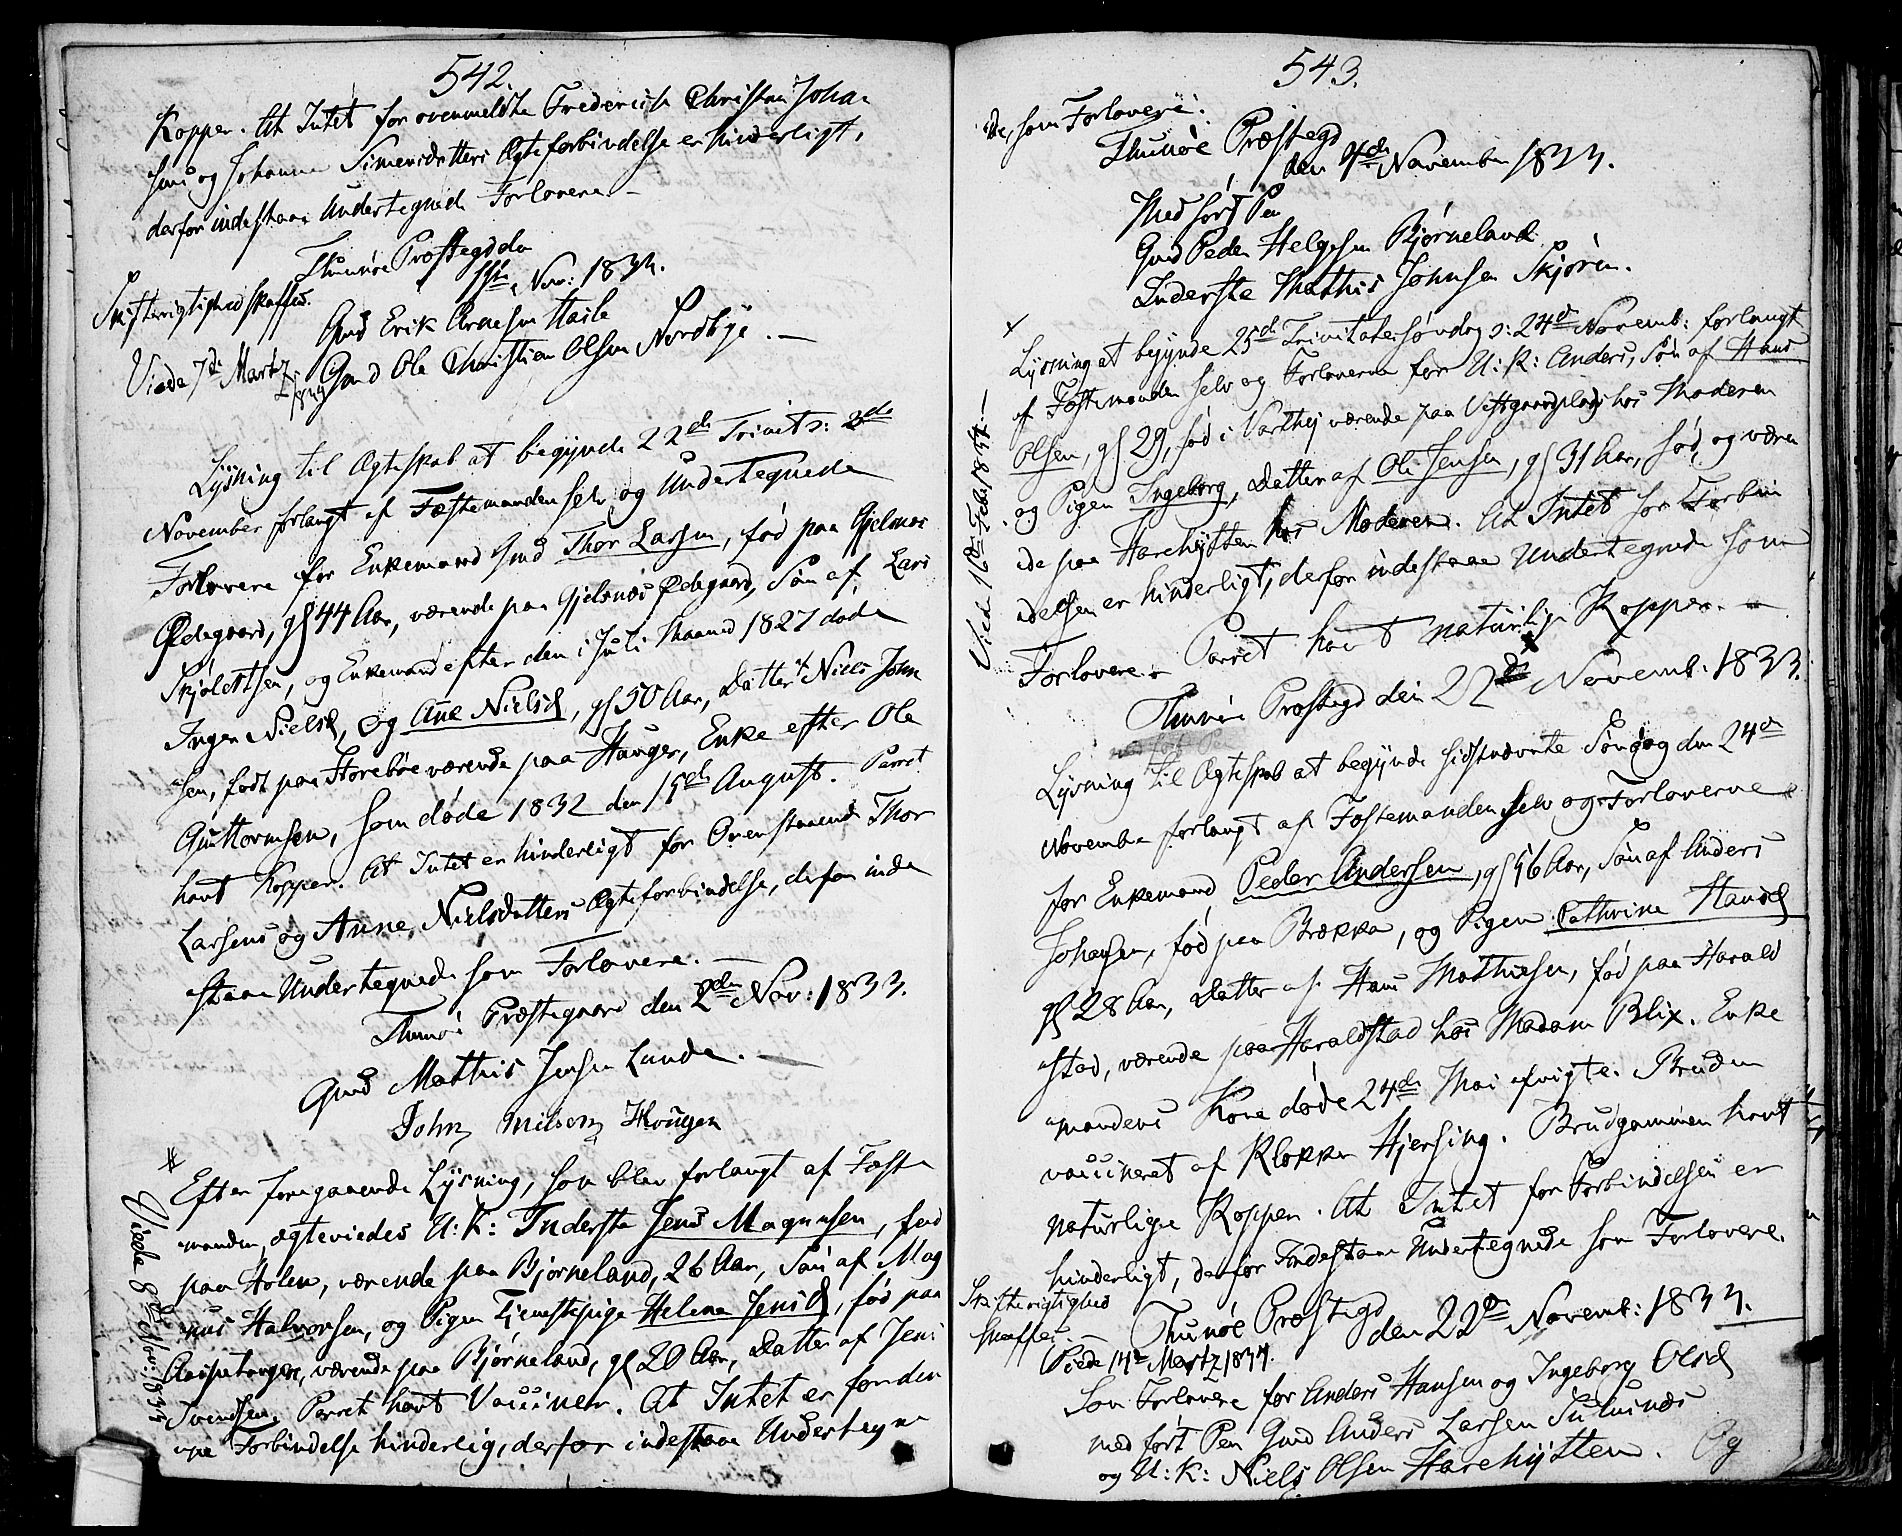 542.
Kopper. At Intet for ovenmeldte Frederich Christian Johan
sens og Johanne Simensdatters Ægteforbindelse er hinderligt,
derfor indestaae Undertegnede Forlovere –
Thunøe Præstegd den
Nov: 1833.
Skifterigtighed skaffes.
Gmd Erik Arnesen Hasle
Viede 7de Martz
Gmd Ole Christian Olsen Nordbye. –
Lysning til Ægteskab at begynde 22de Trinit: 3de
November forlangt af Fæstemanden selv og Undertegnede
Forlovere for Enkemand Gmd Thor Larsen, fød paa Gjelsnæs
Ødegaard, gl 44 Aar, værende paa Gjelsnæs Ødegaard, Søn af Lars
Skjoldtsen, og Enkemand efter den i Juli Maaned 1827 døde
Inger Nielsd, og Ane Nielsd, gl 50 Aar, Datter af Niels John
sen, født paa Storebøe værende paa Hauger, Enke efter Ole
Guttormsen, som døde 1832 den 15de August. Parret
havt Kopper. At Intet er hinderligt for Ovenstaaende Thor
Larsens og Anne Nielsdatters Ægteforbindelse, derfor inde
staae Undertegnede som Forlovere. –
Thunøe Præstegaard den 2den Nov: 1833.
Gmd Mathis Jensen Lunde. –
John Nilsen Hougen
Efter foregaaende Lysning, som blev forlangt af Fæste
manden, ægteviedes U: K: Inderste Jens Magnusen, fød
paa Holen, værende paa Bjørneland, 26 Aar, Søn af Mag
nus Halvorsen, og Pigen Tjenestepige Helene Jensd, fød paa
Aaspetorpet, værende paa Bjørneland, gl 20 Aar, Datter af Jens
Svendsen. Parret havt Vacciner. At Intet er for den
ne Forbindelse hinderlig, derfor indestaae Undertegne
Viede 8de Nov: 1833
543.
de, som Forlovere:
Thunøe Præstegd
den 4de November 1833.
Med ført Pen
Gmd Peder Helgesen Bjørneland
Inderste Mathis Johnsen Skjøren.
Lysning at begynde 25de Trinitatis søndag o: 24de Novemb: forlangt
af Fæstemanden selv og Forloverne for U: K: Anders, Søn af Hans
Olsen, gl 29, fød i Varthej værende paa Vestgaardplads hos Moderen
og Pigen Ingeborg, Datter af Ole Jensen, gl 31 Aar, fød og være
nde paa Harehytten hos Moderen. At Intet for Forbin
delsen er hinderligt, derfor indestaae Undertegnede som
Forlovere. – Parret havt naturlige Kopper. –
Thunøe Præstegd den 22de Novemb: 1833.
Viede 16de Feb: 1834 –
Lysning til Ægteskab at begynde sidstnævnte Søndag den 24de
November forlangt af Fæstemanden selv og Forloverne
for Enkemand Peder Andersen, gl 56 Aar, Søn af Anders
Johansen, fød paa Brække, og Pigen Cathrine Hansd
gl 28 Aar, Datter af Hans Mathiesen, fød paa Harald
stad, værende paa Haraldstad hos Madam Blix. Enke
mandens Kone døde 24de Mai afvigte. Bruden
vaccineret af Klokker Hjersing. Brudgommen havt
naturlige Kopper. At Intet for Forbindelsen er
hinderligt, derfor Indestaae Undertegnede som Forlovere.
Skifterigtighed
skaffes. –
Thunøe Præstegd
den 22de Novemb: 1833.
Viede 14de Martz 1834.
Som Forlovere for Anders Hansen og Ingeborg Olsd
med ført Pen Gmd Anders Larsen
og U: K: Niels Olsen Harehytten. Og